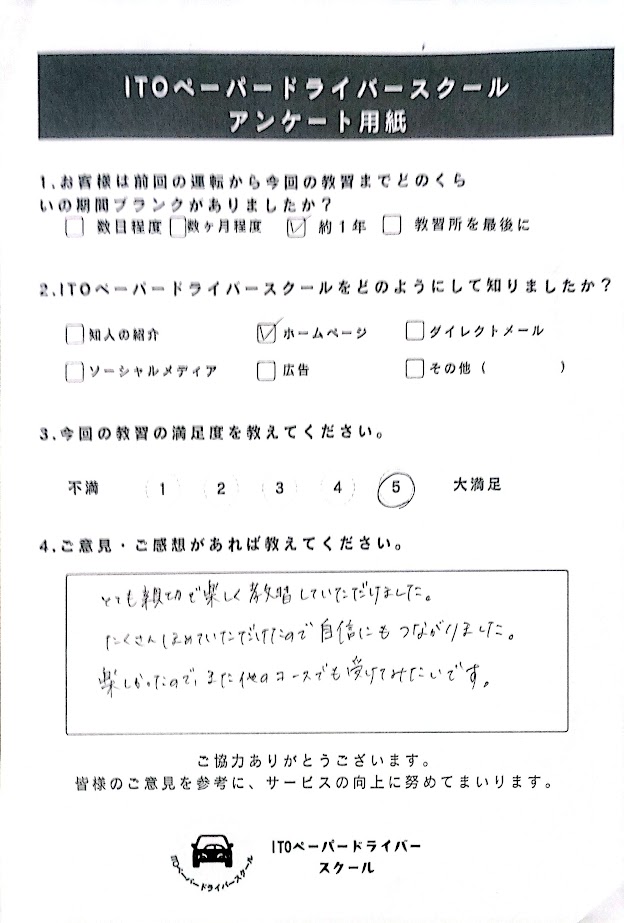 ITOペーパードライバースクール
アンケート用紙
1.お客様は前回の運転から今回の教習までどのくら
いの期間ブランクがありましたか？
数日程度 数ヶ月程度 約1年 教習所を最後に
2.ITOペーパードライバースクールをどのようにして知りましたか？
知人の紹介 ホームページ ダイレクトメール
ソーシャルメディア 広告 その他（ ）
3.今回の教習の満足度を教えてください。
不満 1 2 3 4 5 大満足
4.ご意見・ご感想があれば教えてください。
とても親切で楽しく教習していただけました。
たくさんほめていただけたので自信にもつながりました。
楽しかったので、また他のコースでも受けてみたいです。
ご協力ありがとうございます。
皆様のご意見を参考に、サービスの向上に努めてまいります。
ITOペーパードライバースクール
ITOペーパードライバー
スクール